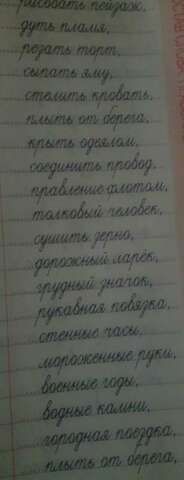 рисовать пейзаж,
дуть пламя,
резать торт,
сыпать яму,
стелить кровать,
плыть от берега,
крыть одеялом,
соединить провод,
правление флотом,
толковый человек,
сушить зерно,
дорожный ларёк,
грудный значок,
рукавная повязка,
стенные часы,
мороженные руки,
военные годы,
водные камни,
городная поездка,
плыть от берега,